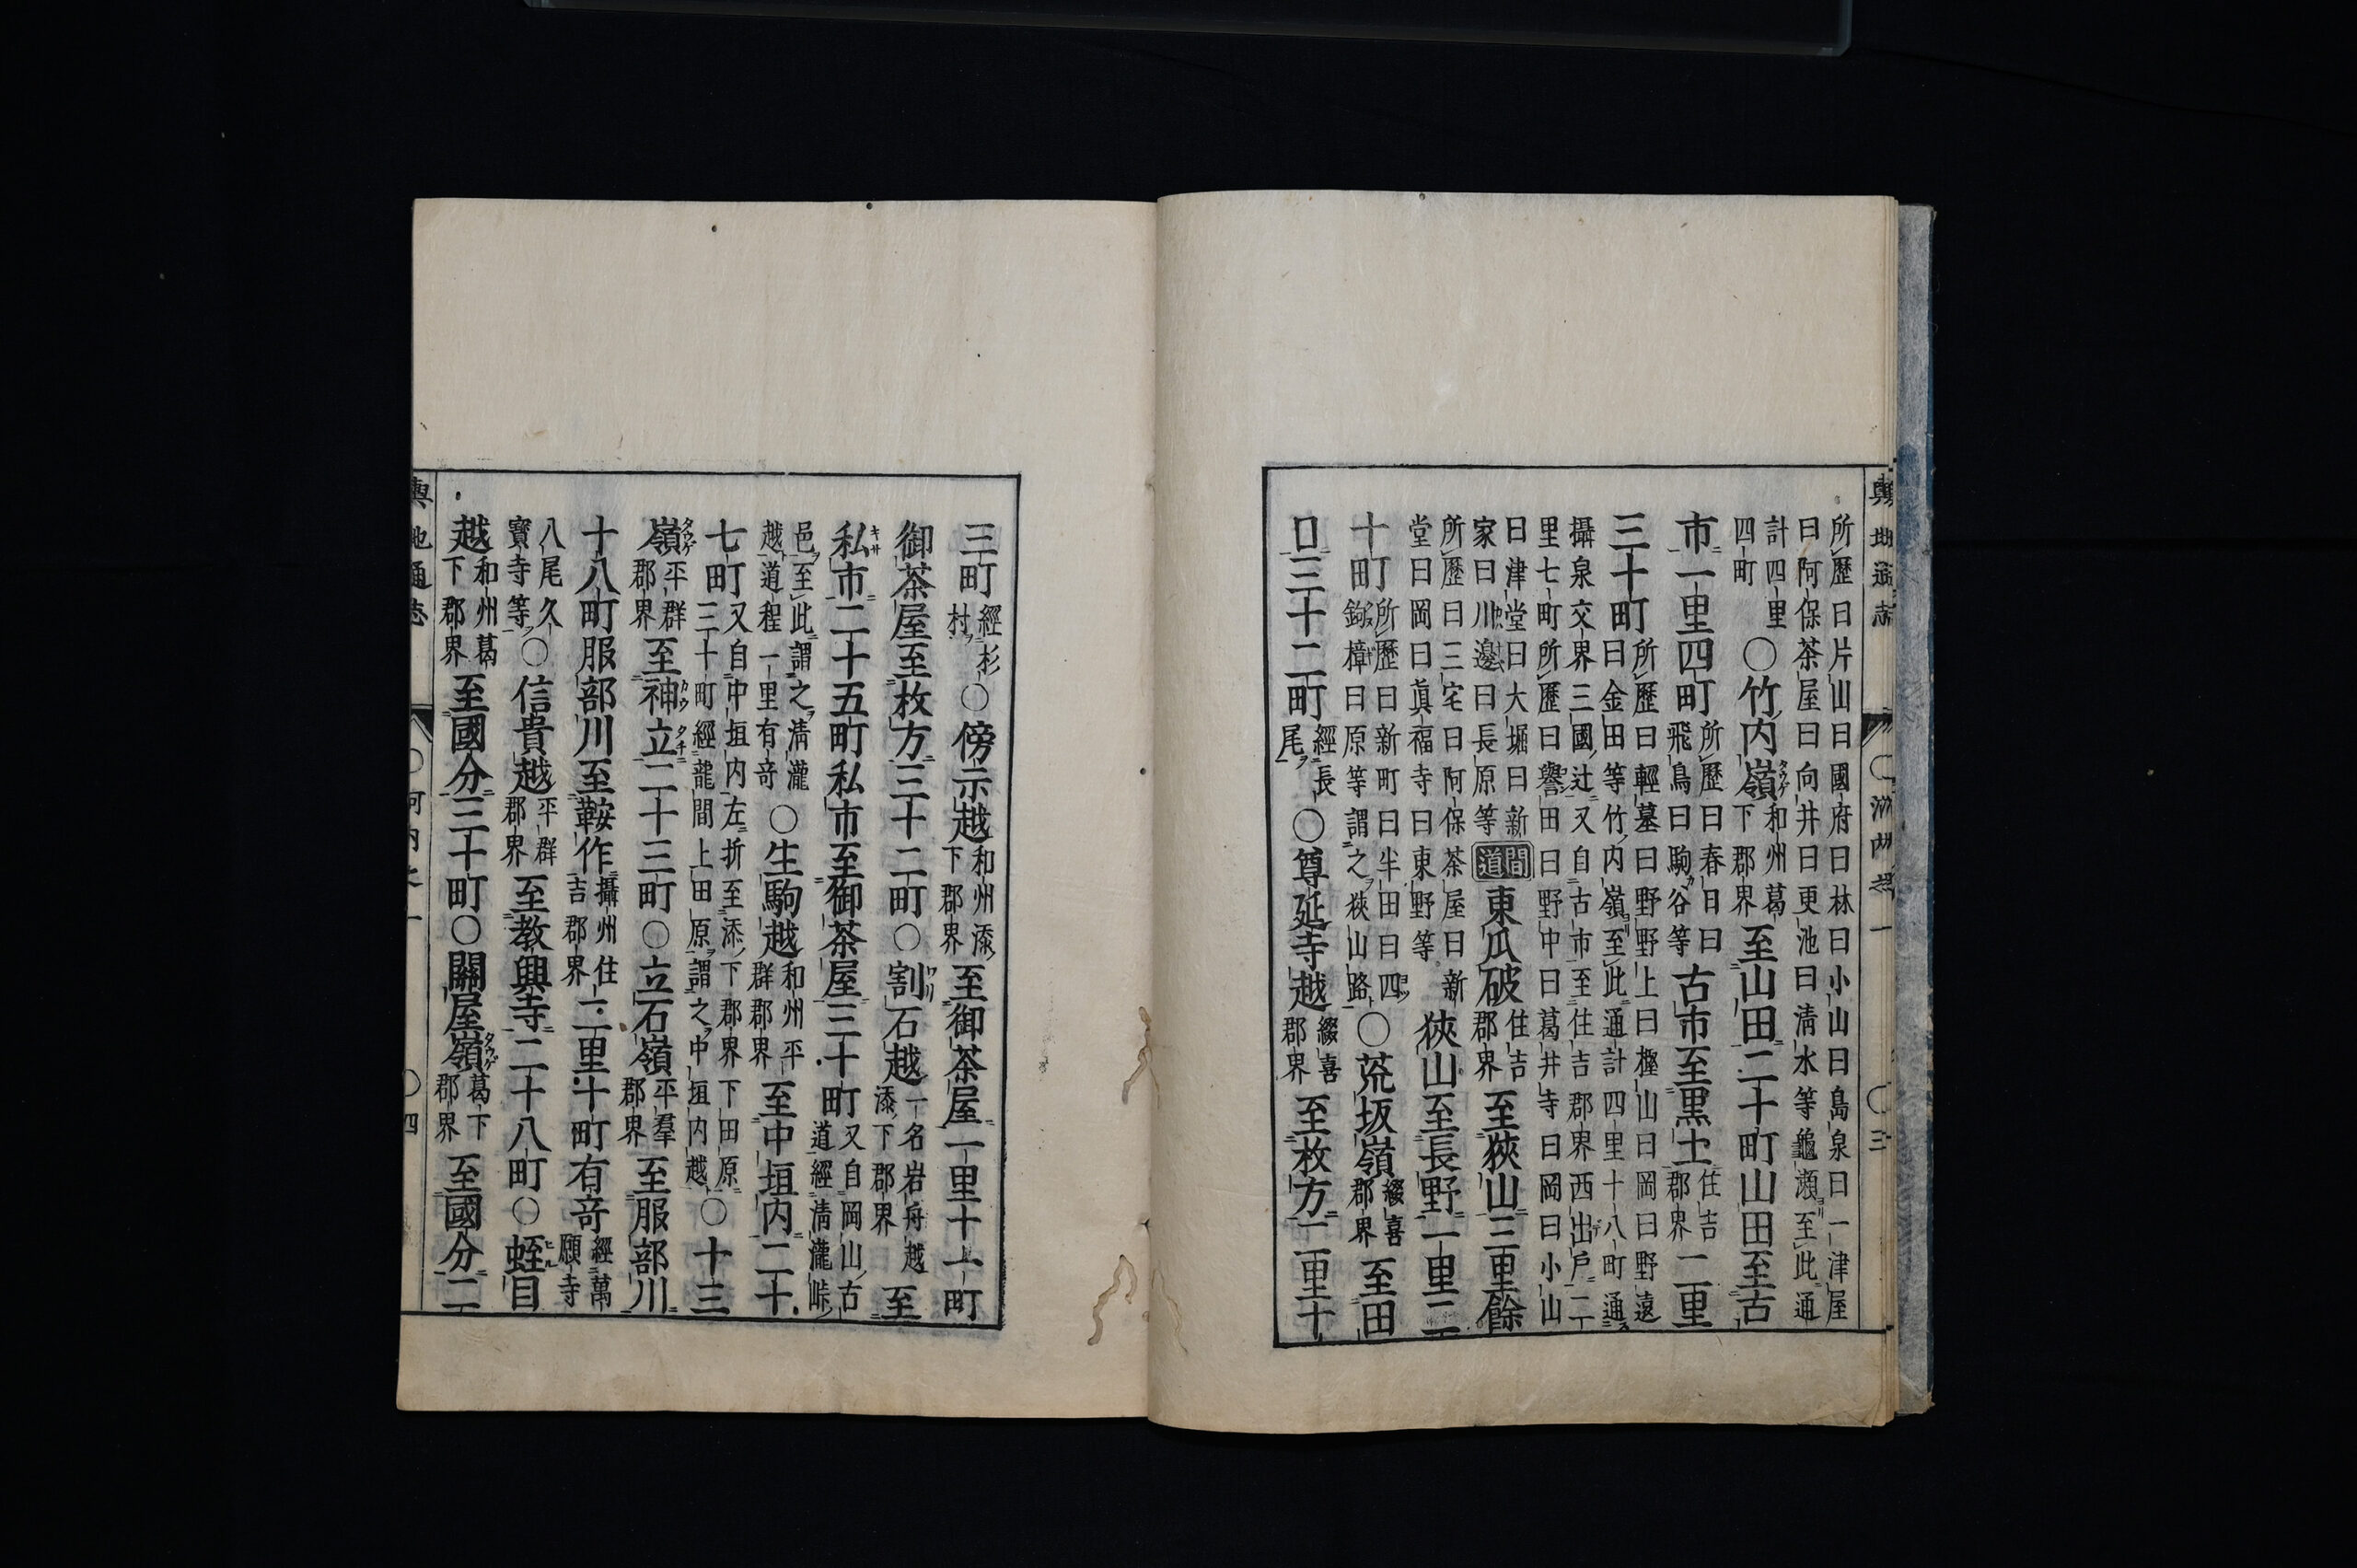 所歷曰片山曰國府曰林曰小山曰島泉曰一津屋
曰阿保茶屋曰向井曰更池曰清水等龜瀨至此通
計四里
四町
〇竹内嶺和州葛下郡界至山田二十町山田至古
市一里四町所歷曰春日曰飛鳥曰駒谷等古市至黒土住吉郡界二里
三十町所歷曰輕墓曰野野上曰樫山曰岡曰野遠
曰金田等竹内嶺至此通計四里十八町通
攝泉交界三國辻又自古市至住吉郡界西出戶二
里七町所歷曰譽田曰野中曰葛井寺曰岡曰小山
曰津堂曰大堀曰新
家曰川邊曰長原等
間道
東瓜破住吉郡界至狹山三里餘
所歷曰三宅曰阿保茶屋曰新
堂曰岡曰眞福寺曰東野等
狹山至長野一里二
十町所歷曰新町曰半田曰四
鉤樟曰原等謂之狹山路
〇荒坂嶺綴喜郡界至田
口三十二町經長尾〇尊延寺越綴喜郡界至枚方二里十
輿地通志
〇河内之一
〇三
三町經杉村〇傍示越和州添下郡界至御茶屋一里十一町
御茶屋至枚方三十二町〇割石越一名岩舟越添下郡界至
私市二十五町私市至御茶屋三十町又自岡山古
道經清瀧峠
邑至此謂之清瀧
越道程一里有奇
〇生駒越和州平群郡界至中垣内二十
七町又自中垣内左折至添下郡界下田原
三十町經龍間上田原謂之中垣内越
〇十三
嶺平群郡界至神立二十三町〇立石嶺平羣郡界至服部川
十八町服部川至鞍作攝州住吉郡界二里十町有奇經萬願寺
八尾久
寶寺等
〇信貴越平群郡界至教興寺二十八町〇蛭目
越和州葛下郡界至國分三十町〇關屋嶺葛下郡界至國分二
輿地通志
〇河内之一
〇四